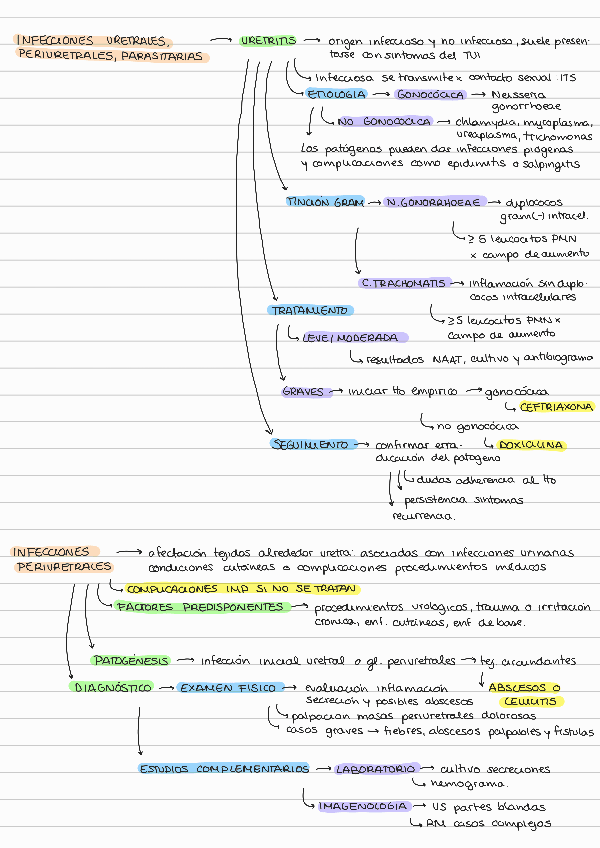 INFECCIONES URETRALES, → URETRITIS → origen infeccioso y no infeccioso, suele presen-
PERIURETRALES, PARASITARIAS
tarse con síntomas del TUI
Infecciosa se transmite x contacto sexual ITS
ETIOLOGIA → GONOCÓCICA → Neisseria
gonorrhoeae
NO GONOCOCICA → chlamydia, mycoplasma,
ureaplasma, trichomonas
Los patógenos pueden dar infecciones piógenas
y complicaciones como epididimitis o salpingitis
TINCIÓN GRAM → N. GONORRHOEAE → diplococos
gram(-) intracel.
≥ 5 leucocitos PMN
x campo de aumento
C. TRACHOMATIS → inflamación sin diplo-
cocos intracelulares
TRATAMIENTO
≥5 leucocitos PMN x
campo de aumento
LEVE/MODERADA
resultados NAAT, cultivo y antibiograma
GRAVES → iniciar tto empírico → gonocócica
CEFTRIAXONA
no gonocócica
SEGUIMIENTO → confirmar erra-
DOXICILINA
dicación del patógeno
dudas adherencia al tto
persistencia síntomas
recurrencia.
INFECCIONES → afectación tejidos alrededor uretra: asociadas con infecciones urinarias
PERIURETRALES
condiciones cutáneas o complicaciones procedimientos médicos
COMPLICACIONES IMP SI NO SE TRATAN
FACTORES PREDISPONENTES → procedimientos urológicos, trauma o irritación
crónica, enf. cutáneas, enf de base.
PATOGÉNESIS → infección inicial uretral o gl. periuretrales → tej. circundantes
DIAGNÓSTICO → EXAMEN FISICO → evaluación inflamación
ABSCESOS O
secreción y posibles abscesos
CELULITIS
palpación masas periuretrales dolorosas
casos graves → fiebres, abscesos palpables y fístulas
ESTUDIOS COMPLEMENTARIOS → LABORATORIO → cultivo secreciones
hemograma.
IMAGENOLOGIA → US partes blandas
RM casos complejos